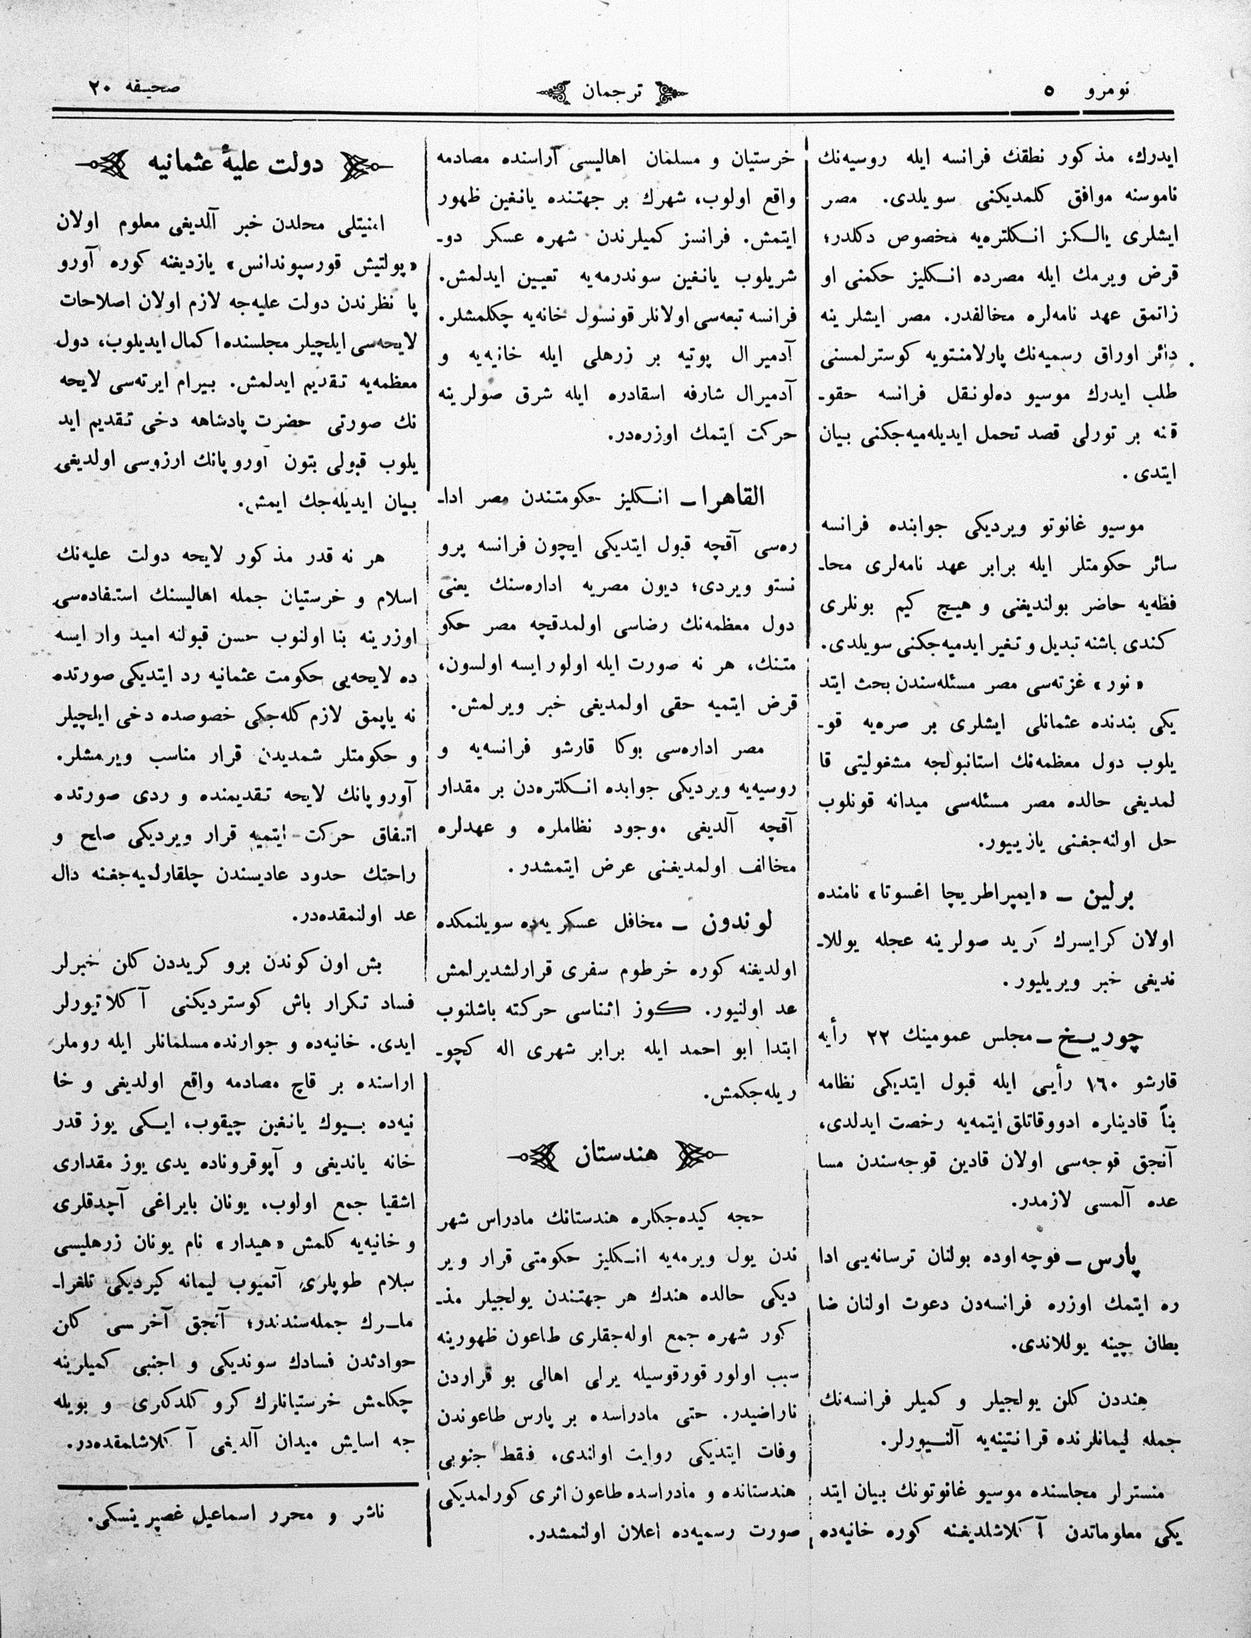 نومرو ٥
ترجمان
صحیفه ٢٠
ایدرك، مذكور نطقك فرانسه ایله روسیه‌نك
ناموسنه موافق كلمدیكنی سویلدی. مصر
ایشلری یالـكز انـكلتره‌یه مخصوص دكلدر؛
قرض ویرمك ایله مصرده انـكلیز حكمنی او
زاتمق عهد نامه‌لره مخالفدر. مصر ایشلرینه
دائر اوراق رسمیه‌نك پارلامنتویه كوسترلمسنی
طلب ایدرك موسیو ده‌لونقل فرانسه حقو-
قنه بر تورلی قصد تحمل ایدیله‌میه‌جكنی بیان
ایتدی.
موسیو غانوتو ویردیكی جوابنده فرانسه
سائر حكومتلر ایله برابر عهد نامه‌لری محا-
فظه‌یه حاضر بولندیغنی و هیچ كیم بونلری
كندی باشنه تبدیل و تغیر ایدمیه‌جكنی سویلدی.
«نور» غزته‌سی مصر مسئله‌سندن بحث ایتد
یكی بندنده عثمانلی ایشلری بر صره‌یه قو-
یلوب دول معظمه‌نك استانبولجه مشغولیتی قا
لمدیغی حالده مصر مسئله‌سی میدانه قونلوب
حل اولنه‌جغنی یازییور.
برلین ـ «ایمپراطریچا اغسوتا» نامنده
اولان كرایسرك كرید صولرینه عجله یوللا-
ندیغی خبر ویریلیور.
چوریـخ ـ مجلس عمومینك ٢٢ رأیه
قارشو ١٦٠ رأیی ایله قبول ایتدیكی نظامه
بناً قادینلره ادووقاتلق ایتمه‌یه رخصت ایدلدی،
آنجق قوجه‌سی اولان قادین قوجه‌سندن مسا
عده آلمسی لازمدر.
پارس ـ فوچه‌اوده بولنان ترسانه‌یی ادا
ره ایتمك اوزره فرانسه‌دن دعوت اولنان ضا
بطان چینه یوللاندی.
هنددن كلن یولجیلر و كمیلر فرانسه‌نك
جمله لیمانلرنده قرانتینه‌یه آلنـیورلر.
منسترلر مجلسنده موسیو غانوتونك بیان ایتد
یكی معلوماتدن آكلاشلدیغنه كوره خانیه‌ده
خرستیان و مسلمان اهالیسی آراسنده مصادمه
واقع اولوب، شهرك بر جهتنده یانغین ظهور
ایتمش. فرانسز كمیلرندن شهره عسكر دو-
شریلوب یانغین سوندرمه‌یه تعیین ایدلمش.
فرانسه تبعه‌سی اولانلر قونسول خانه‌یه چكلمشلر.
آدمیرال پوتیه بر زرهلی ایله خانیه‌یه و
آدمیرال شارفه اسقادره ایله شرق صولرینه
حركت ایتمك اوزره‌در.
القاهرا ـ انـكلیز حكومتندن مصر ادا-
ره‌سی آقچه قبول ایتدیكی ایچون فرانسه پرو
تستو ویردی؛ دیون مصریه اداره‌سنك یعنی
دول معظمه‌نك رضاسی اولمدقچه مصر حكو
متنك، هر نه صورت ایله اولورایسه اولسون،
قرض ایتمیه حقی اولمدیغی خبر ویرلمش.
مصر اداره‌سی بوكا قارشو فرانسه‌یه و
روسیه‌یه ویردیكی جوابده انـكلتره‌دن بر مقدار
آقچه آلدیغی موجود نظاملره و عهدلره
مخالف اولمدیغنی عرض ایتمشدر.
لوندون ـ محافل عسكریه‌ده سویلنمكده
اولدیغنه كوره خرطوم سفری قرارلشدیرلمش
عد اولنیور. كوز اثناسی حركته باشلنوب
ابتدا ابو احمد ایله برابر شهری اله كچو-
ریله‌جكمش.
هندستان
حجه كیده‌جكلره هندستانك مادراس شهر
ندن یول ویرمه‌یه انـكلیز حكومتی قرار ویر
دیكی حالده هندك هر جهتندن یولجیلر مذ-
كور شهره جمع اوله‌جقلری طاعون ظهورینه
سبب اولور قورقوسیله یرلی اهالی بو قراردن
ناراضیدر. حتی مادراسده بر پارس طاعوندن
وفات ایتدیكی روایت اولندی، فقط جنوبی
هندستانده و مادراسده طاعون اثری كورلمدیكی
صورت رسمیه‌ده اعلان اولنمشدر.
دولت علیهٔ عثمانیه
امنیتلی محلدن خبر آلدیغی معلوم اولان
«پولتیش قورسپوندانس» یازدیغنه كوره آورو
پا نظرندن دولت علیه‌جه لازم اولان اصلاحات
لایحه‌سی ایلچیلر مجلسنده اكمال ایدیلوب، دول
معظمه‌یه تقدیم ایدلمش. بیرام ایرته‌سی لایحه
نك صورتی حضرت پادشاهه دخی تقدیم اید
یلوب قبولی بتون آوروپانك ارزوسی اولدیغی
بیان ایدیله‌جك ایمش.
هر نه قدر مذكور لایحه دولت علیه‌نك
اسلام و خرستیان جمله اهالیسنك استفاده‌سی
اوزرینه بنا اولنوب حسن قبولنه امید وار ایسه
ده لایحه‌یی حكومت عثمانیه رد ایتدیكی صورتده
نه یاپمق لازم كله‌جكی خصوصده دخی ایلچیلر
و حكومتلر شمدیدن قرار مناسب ویرمشلر.
آوروپانك لایحه تقدیمنده و ردی صورتده
اتـفاق حركت ایتمیه قرار ویردیكی صلح و
راحتك حدود عادیسندن چلقارلمیه‌جغنه دال
عد اولنمقده‌در.
بش اون كوندن برو كریددن كلن خبرلر
فساد تكرار باش كوستردیكنی آكلاتیورلر
ایدی. خانیه‌ده و جوارنده مسلمانلر ایله روملر
اراسنده بر قاچ مصادمه واقع اولدیغی و خا
نیه‌ده بیوك یانغین چیقوب، ایـكی یوز قدر
خانه یاندیغی و آپوقروناده یدی یوز مقداری
اشقیا جمع اولوب، یونان بایراغی آچدقلری
و خانیه‌یه كلمش «هیدار» نام یونان زرهلیسی
سلام طوپلری آتمیوب لیمانه كیردیكی تلغرا-
ملـرك جمله‌سندندر؛ آنجق آخر سی كلن
حوادثدن فسادك سوندیكی و اجنبی كمیلرینه
چكلمش خرستیانلرك كرو كلدكلری و بویله
جه اسایش میدان آلدیغی آكلاشلمقده‌در.
ناشر و محرر اسماعیل غصپرینسكی.